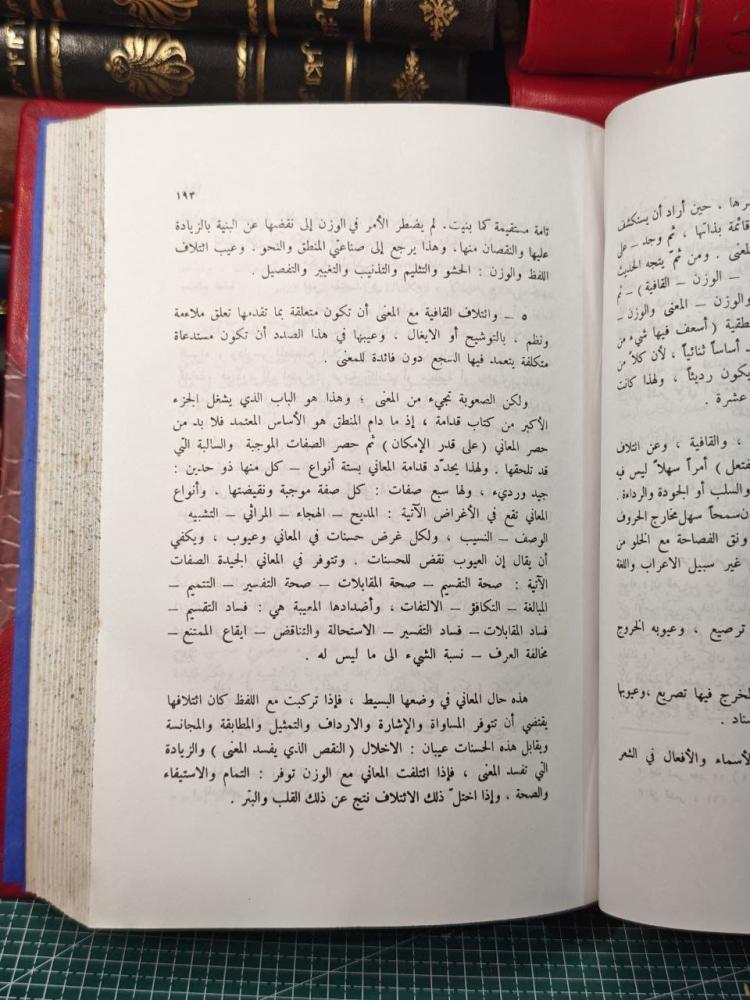 ١٩٣
تامة مستقيمة كما بنيت. لم يضطر الأمر في الوزن إلى نقضها عن البنية بالزيادة
عليها والنقصان منها. وهذا يرجع إلى صناعتي المنطق والنحو . وعيب ائتلاف
اللفظ والوزن : الحشو والتثليم والتذنيب والتغيير والتفصيل .
٥ – وائتلاف القافية مع المعنى أن تكون متعلقة بما تقدمها تعلق ملاءمة
ونظم ، بالتوشيح أو الايغال . وعيبها في هذا الصدد أن تكون مستدعاة
متكلفة يتعمد فيها السجع دون فائدة للمعنى .
ولكن الصعوبة تجيء من المعنى ؛ وهذا هو الباب الذي يشغل الجزء
الأكبر من كتاب قدامة ، إذ ما دام المنطق هو الأساس المعتمد فلا بد من
حصر المعاني (على قدر الإمكان) ثم حصر الصفات الموجبة والسالبة التي
قد تلحقها . ولهذا يحدّد قدامة المعاني بستة أنواع – كل منها ذو حدين :
جيد ورديء ، ولها سبع صفات : كل صفة موجبة ونقيضتها . وأنواع
المعاني تقع في الأغراض الآتية : المديح – الهجاء – المراثي – التشبيه
الوصف – النسيب ، ولكل غرض حسنات في المعاني وعيوب ، ويكفي
أن يقال إن العيوب نقض للحسنات . وتتوفر في المعاني الجيدة الصفات
الآتية : صحة التقسيم – صحة المقابلات – صحة التفسير – التتميم –
المبالغة – التكافؤ – الالتفات ، وأضدادها المعيبة هي : فساد التقسيم –
فساد المقابلات – فساد التفسير – الاستحالة والتناقض – ايقاع الممتنع –
مخالفة العرف – نسبة الشيء الى ما ليس له .
هذه حال المعاني في وضعها البسيط ، فإذا تركبت مع اللفظ كان ائتلافها
يقتضي أن تتوفر المساواة والإشارة والارداف والتمثيل والمطابقة والمجانسة
ويقابل هذه الحسنات عيبان : الاخلال (النقص الذي يفسد المعنى ) والزيادة
التي تفسد المعنى ، فإذا ائتلفت المعاني مع الوزن توفر : التمام والاستيفاء
والصحة ، وإذا اختلّ ذلك الائتلاف نتج عن ذلك القلب والبتر .
حين أراد أن يستكشف
قائمة بذاتها ، ثم وجد – على
المعنى . ومن ثمّ يتجه الحديث
– الوزن – القافية) – ثم
والوزن – المعنى والوزن –
( أسعف فيها شيء من
أساساً ثنائياً ، لأن كلاً من
يكون رديئاً ، ولهذا كانت
عشرة .
، والقافية ، وعن ائتلاف
أمراً سهلاً ليس فيه
والسلب أو الجودة والرداءة.
سمحاً سهل مخارج الحروف
ونق الفصاحة مع الخلو من
غير سبيل الاعراب واللغة
ترصيع ، وعيوبه الخروج
المخرج فيها تصريع ،وعيوبها
الأسماء والأفعال في الشعر